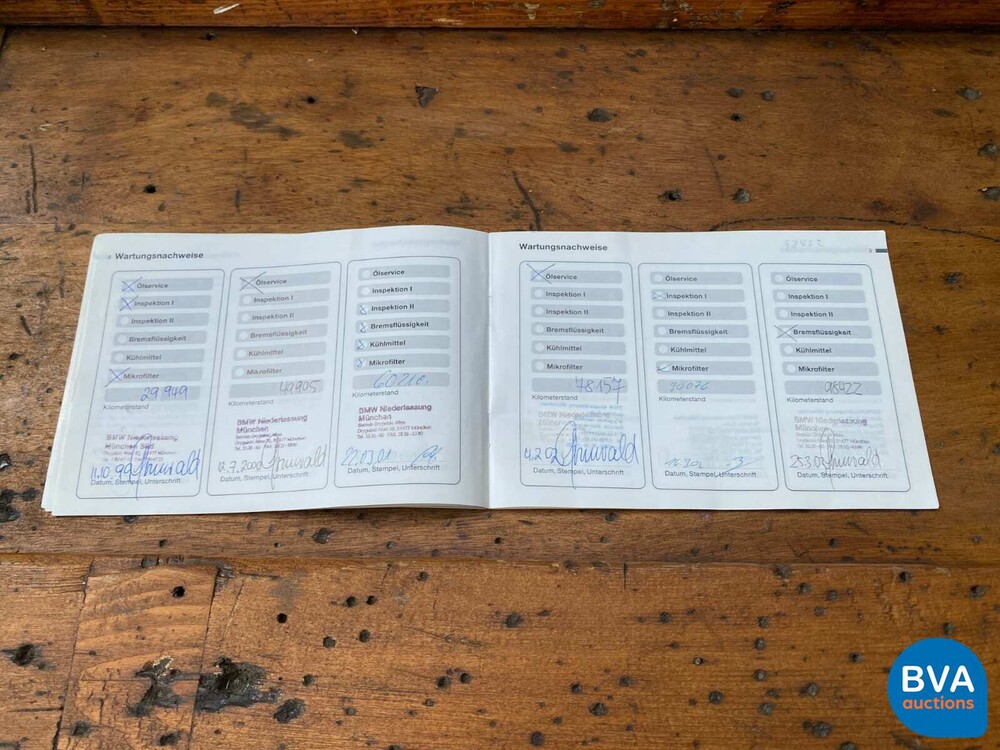 Wartungsnachweise
Ölservice
Inspektion I
Inspektion II
Bremsflüssigkeit
Kühlmittel
Mikrofilter
29 949
Kilometerstand
BMW Niederlassung
München Süd
11.10.99
Datum, Stempel, Unterschrift
Ölservice
Inspektion I
Inspektion II
Bremsflüssigkeit
Kühlmittel
Mikrofilter
49905
Kilometerstand
BMW Niederlassung
München
Datum, Stempel, Unterschrift
Ölservice
Inspektion I
Inspektion II
Bremsflüssigkeit
Kühlmittel
Mikrofilter
Kilometerstand
BMW Niederlassung
München
22.03.01
Datum, Stempel, Unterschrift
Wartungsnachweise
Ölservice
Inspektion I
Inspektion II
Bremsflüssigkeit
Kühlmittel
Mikrofilter
78157
Kilometerstand
BMW Niederlassung
4.2.02
Datum, Stempel, Unterschrift
Ölservice
Inspektion I
Inspektion II
Bremsflüssigkeit
Kühlmittel
Mikrofilter
Kilometerstand
Datum, Stempel, Unterschrift
Ölservice
Inspektion I
Inspektion II
Bremsflüssigkeit
Kühlmittel
Mikrofilter
98422
Kilometerstand
BMW Niederlassung
München
25.3.03
Datum, Stempel, Unterschrift
BVA
auctions